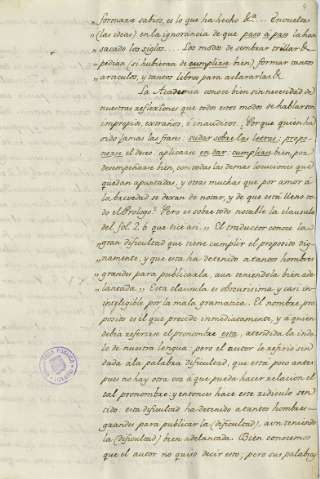 formara sabios, es lo que ha hecho &ª... Envueltas
„(las ideas) en la ignorancia de que paso a paso la han
„sacado los siglos.... Los modos de sembrar trillar &
„pedian (si hubieran de cumplirse bien) formar tantos
„articulos, y tantos libros para aclararlas &
La Academia conoce bien sin necesidad de
nuestras reflexîones que todos estos modos de hablar son
impropios, extraños, è inauditos. Por que quien ha
oido jamas las frases, cuidar sobre las letras; propo-
nerse el deseo aplicarse en dar cumplirse bien, por
desempeñarse bien, con todas las demas locuciones que
quedan apuntadas, y otras muchas que por amor à
la brevedad se dexan de notar, y de que está lleno to-
do el Prologo? Pero es sobre todo notable la clausula
del fol. 2. ò que dice asi. „El traductor conoce la
„gran dificultad que tiene cumplir el proposito dig-
„namente, y que esta ha detenido a tantos hombres
„grandes para publicarla, aun teniendola bien ade-
„lantada.„ Esta clausula es obscurisima, y casi in-
inteligible por la mala gramatica. El nombre pro-
posito es el que precede inmediatamente, y à quien
debia referirse el pronombre esta, atendida la indo-
le de nuestra lengua; pero el autor lo refirio sin
duda a la palabra dificultad, que esta poco antes
pues no hay otra cosa à que pueda hacer relacion el
tal pronombre; y entonces hace este ridiculo sen-
tido: esta dificultad ha detenido a tantos hombres
grandes para publicar la (dificultad), aun teniendo
la (dificultad) bien adelantada. Bien conocemos
que el autor no quiso decir esto; pero sus palabras